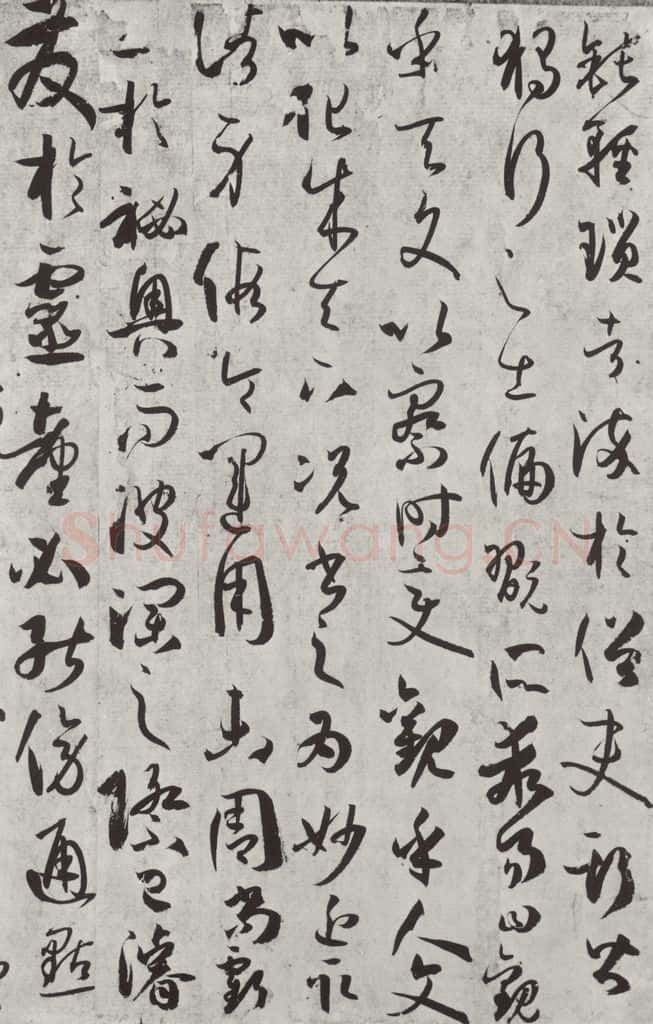 鈍輕瑣者染於俗吏斯皆
獨行之士偏翫所乖易曰觀
乎天文以察時變觀乎人文
以化成天下況書之為妙近取
諸身假令運用未周尚虧
工於秘奧而波瀾之際已濬
發於靈臺必能傍通點
Shufawang.CN